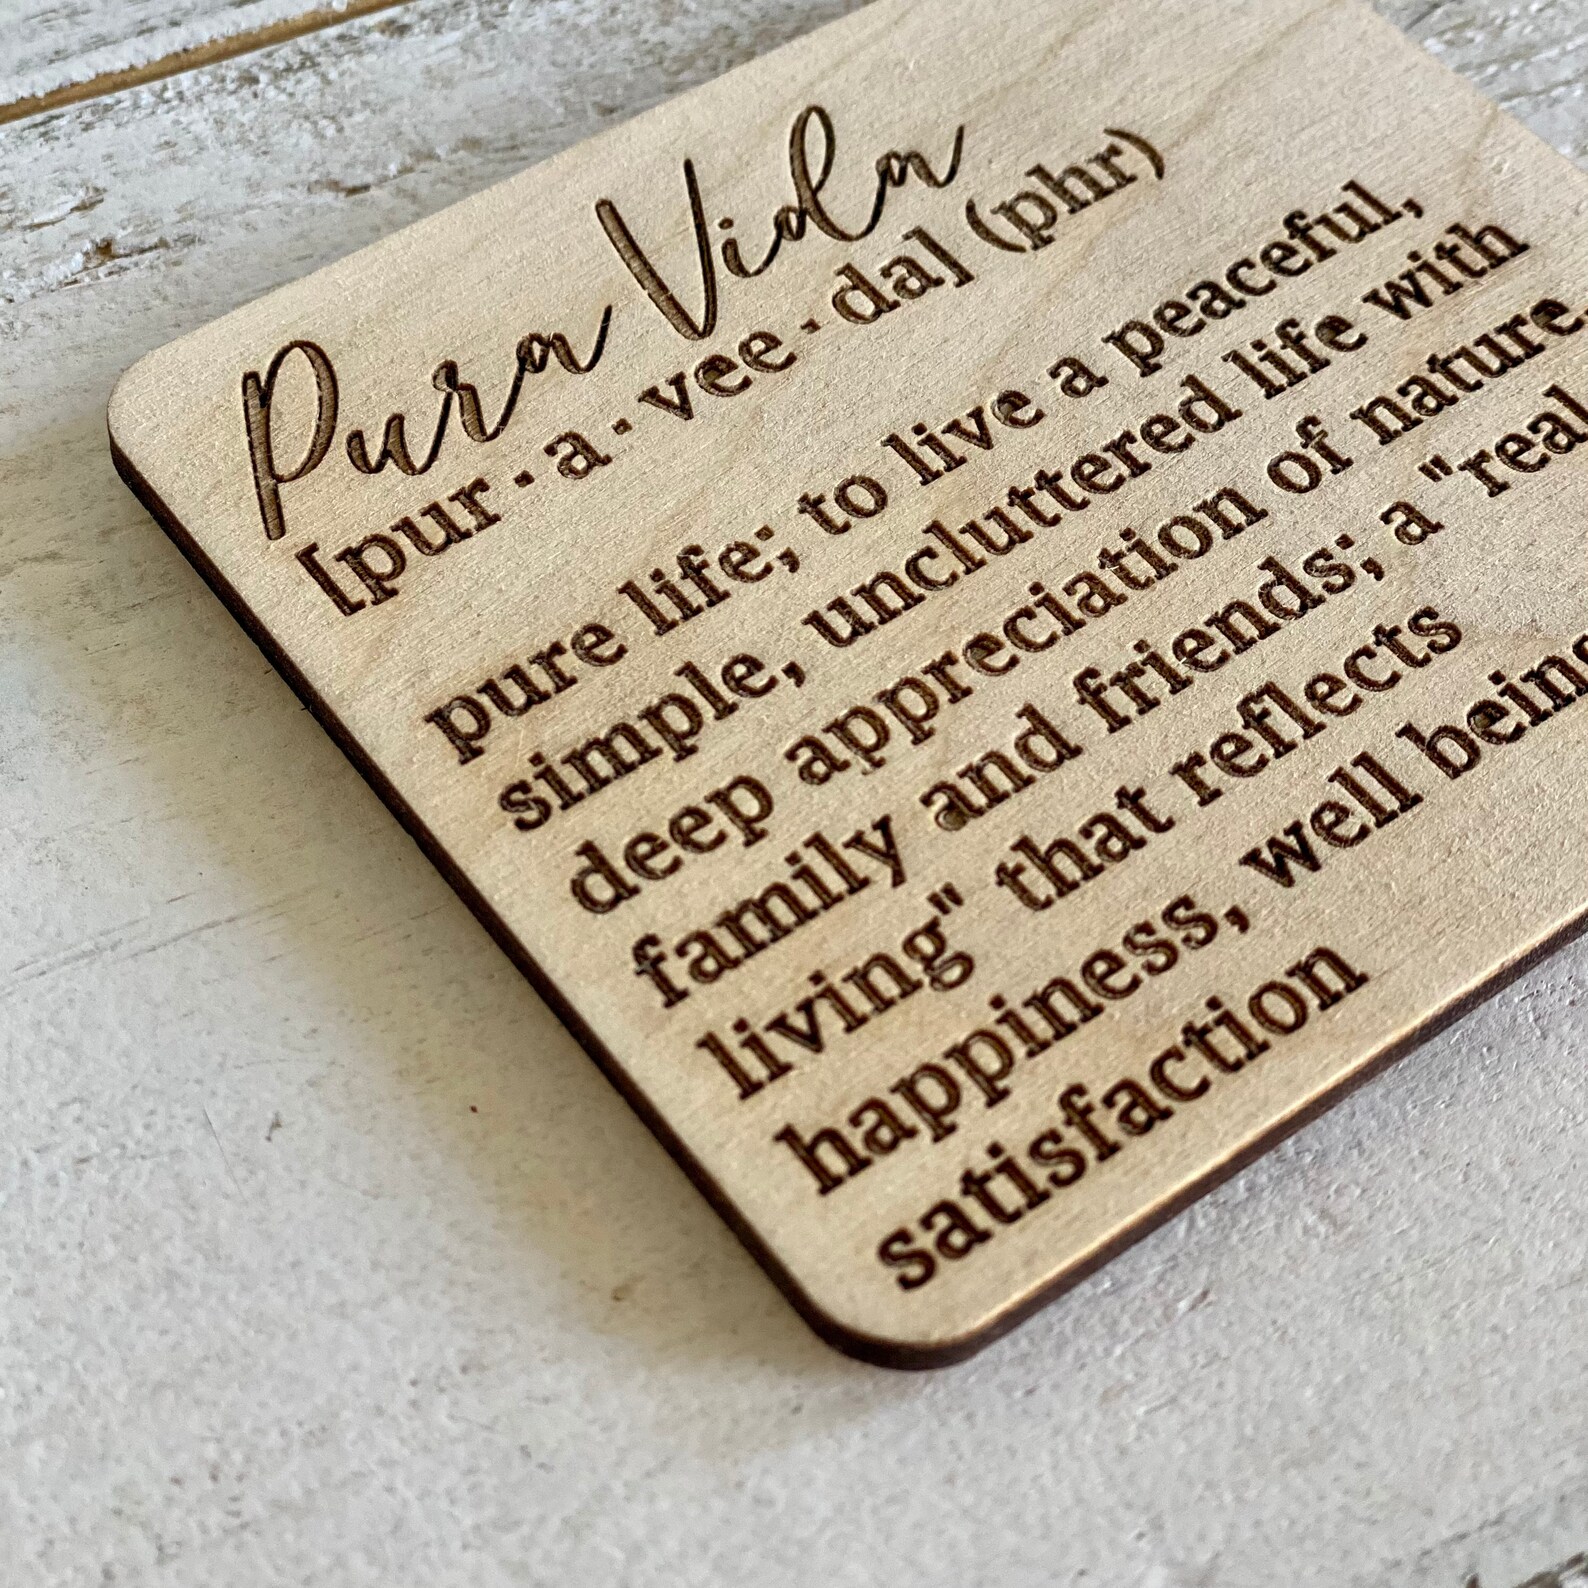 Pura Vida
[pur · a · vee · da] (phr)
pure life; to live a peaceful,
simple, uncluttered life with
deep appreciation of nature,
family and friends; a "real
living" that reflects
happiness, well being
satisfaction